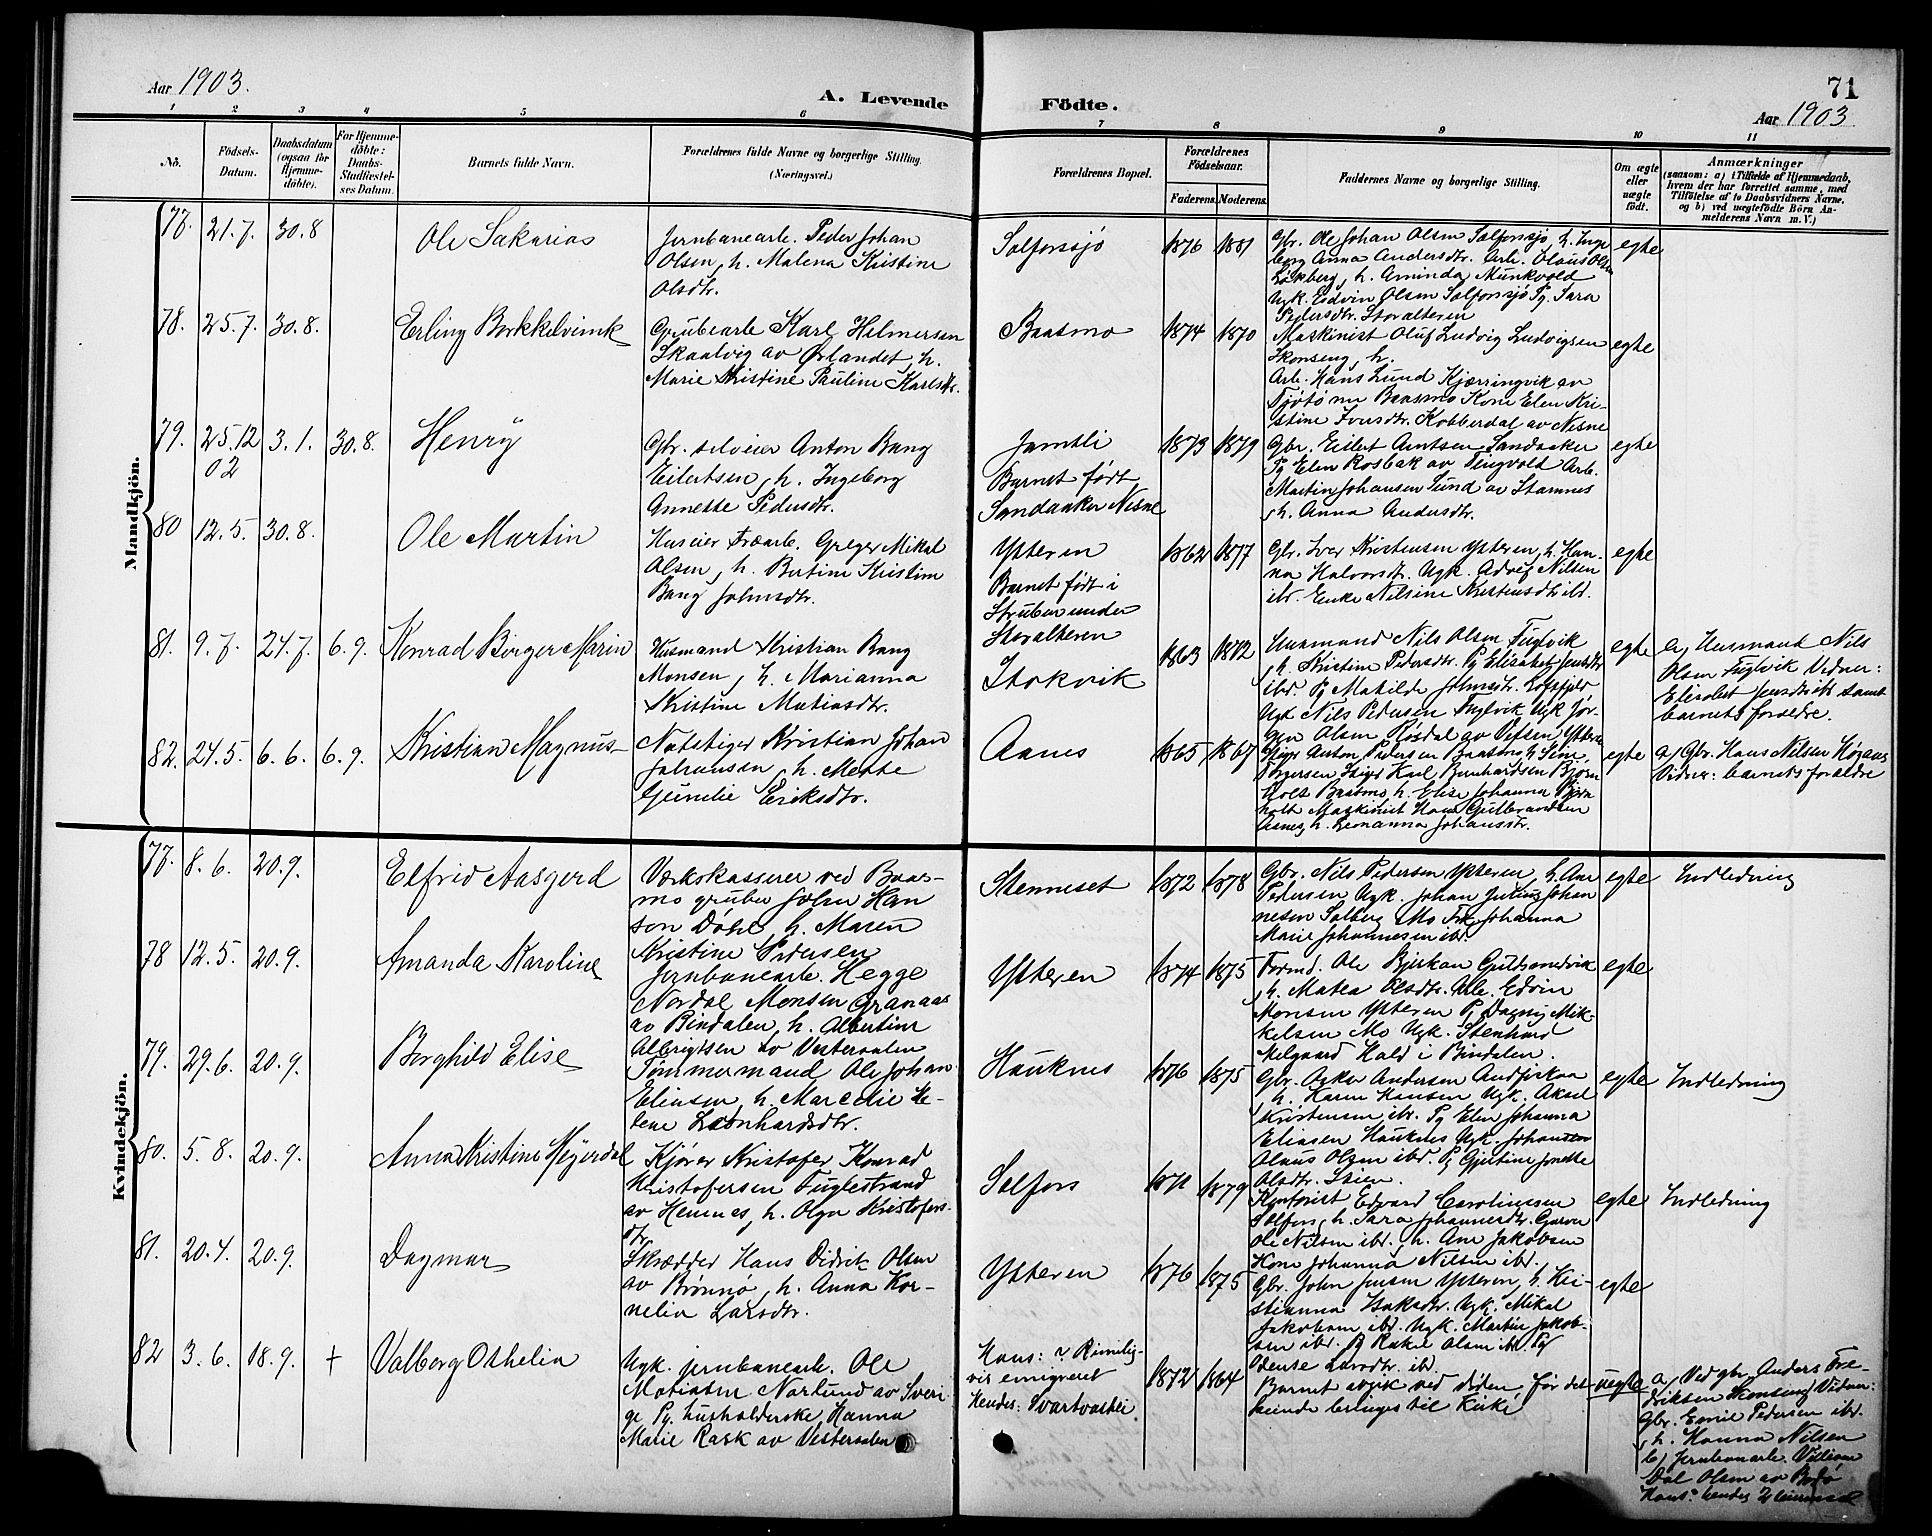 Aar 1903.
A. Levende
Födte.
71
Aar 1903
1 2 3 4 5 6 7 8 9 10 11
No.
Födsels-
Datum.
Daabsdatum
(ogsaa for
Hjemme-
döbte).
For Hjemme-
döbte:
Daabs-
Stadfæstel-
ses Datum.
Barnets fulde Navn.
Forældrenes fulde Navne og borgerlige Stilling.
(Næringsvei.)
Forældrenes Bopæl.
Forældrenes
Födselsaar.
Faderens. Moderens.
Faddernes Navne og borgerlige Stilling.
Om ægte
eller
uægte
födt.
Anmærkninger
(saasom: a) i Tilfælde af Hjemmedaab,
hvem der har forrettet samme, med
Tilföielse af to Daabsvidners Navne,
og b) ved uægtefödte Börn An-
melderens Navn m. V.)
Mandkjön.
77. 21.7. 30.8
Ole Sakarias
Jernbanearb. Peder Johan
Olsen, h. Malena Kristine
Olsdtr.
Selforssjø
1876 1881
Gbr. Ole Johan Olsen Selforssjø, h. Inge
borg Anna Andersdtr. Arb. Olaus Olsen
Løkberg, h. Aminda Munkvold
Ugk. Edvin Olsen Selforssjø Pg. Sara
Pedersdtr. Storalteren
egte
78. 25.7. 30.8.
Erling
Grubearb Karl Helmersen
Skaalvig av Ørlandet, h.
Marie Kristine Pauline Karlsdtr.
Baasmo
1874 1870
Maskinist Oluf Ludvig Ludvigsen
Skonseng, h.
Arb. Hans Lund Kjærringvik av
Tjøtø nu Baasmo Kone Elen Kri-
stine Iversdtr. Kobberdal av Nesne
egte
79. 25.12 3.1. 30.8.
02
Henry
Gbr. selveier Anton Bang
Eilertsen, h. Ingeborg
Annette Pedersdtr.
Jamtli
Barnet født
Sandaaker Nesne
1873 1879
Gbr. Eilert Arntsen Sandaaker
Pg Elen Rosbak av Tingvold Arb.
Martin Johansen Sund av Stamnes
, h. Anna Andersdtr.
egte
80 12.5. 30.8.
Ole Martin
Huseier Træarb. Greger Mikal
Olsen, h. Bertine Kristine
Bang Johnsdtr.
Ytteren
Barnet født i
under
Storalteren
1862 1877
Gbr. Iver Kristensen Ytteren, h. Han-
na Halvorsdtr. Ugk. Adolf Nilsen
ibr. Enke Nilsine Kristensdtr ibd.
egte
81. 9.7. 24.7. 6.9.
Konrad Birger Marin
Husmand Kristian Bang
Monsen, h. Marianna
Kristine Matiasdtr.
Stokvik
1863 1872
Husmand Nils Olsen Fuglvik
, h. Kristine Pedersdtr. Pg Elisabet Jensdtr
ibd. Pg Matilde Johnsdtr.
Ugk Nils Pedersen Fuglvik Ugk Jør-
gen Olsen Røsdal av Vefsen Ytteren
egte
a, Husmand Nils
Olsen Fuglvik Vidner:
Elisabet Jensdtr ibd. samt
barnets foreldre.
82. 24.5. 6.6. 6.9.
Kristian Magnus
Notstiger Kristian Johan
Johansen, h. Mette
Gurelie Eriksdtr.
Aanes
1865 1867
Stiger Anton Pedersen Baasmo h. Sine,
Jørgensen Stiger Karl Bernhardsen Bjørn
holt Baasmo h. Elise Johanna Bjørn
holt Maskinist Hans Gulbrandsen
Aanes, h. Leonanna Johansdtr.
egte
a, Gbr. Hans Nilsen
Vidner: barnets forældre
Kvindekjön.
77. 8.6. 20.9.
Elfrid Aasgerd
Værkskasserer ved Baas-
mo gruber John Han
sen Døhl, h. Maren
Kristine Pedersen
Stenneset
1872 1878
Gbr. Nils Pedersen Ytteren, h. Ane
Pedersen Ugk. Johan Julius Johan
nesen Solberg Mo Frk. Johanna
Marie Johannesen ibd.
egte
Indledning
78 12.5. 20.9.
Amanda Karoline
Jernbanearb. Hegge
Nordal Monsen Granaas
av Bindalen, h. Albertine
Albrigtsen av Vesteraalen
Ytteren
1874 1875
Formd. Ole Bjerkan Guldsmedvik
, h. Matea Olsdtr. Arb. Edvin
Monsen Ytteren Pg Dagny Mik-
kelsen Mo Ugk. Stenhard
Melgaard Hald i Bindalen.
egte
79. 29.6. 20.9.
Borghild Elise
Tømmermand Ole Johan
Eliasen, h. Marselie He-
lene Leonhardsdtr.
Hauknes
1876 1875
Gbr. Andersen Andfiskaa
, h. Karen Hansen Ugk. Aksel
Kristensen ibd. Pg Elen Johanna
Eliasen Hauknes Ugk. Johansen
Olaus Olsen ibd. Pg Gjertine Jonette
Olsdtr. Stien
egte
Indledning
80. 5.8. 20.9.
Anna Kristine Meyerdal
Kjører Kristofer Konrad
Kristofersen Fuglestrand
av Hemnes, h. Olga Kristofers-
dtr.
Selfors
1871 1879
Edvard Carolinessen
Selfors, h. Sara Johannesdtr.
Ole Nilsen ibd., h. Ane Jakobsen
Kone Johanna Nilsen ibd.
egte
Indledning
81. 20.4. 20.9.
Dagmar
Skrædder Hans Didrik Olsen
av Brønnø, h. Anna Kor-
nelia Larsdtr.
Ytteren
1876 1875
Gbr. John Jensen Ytteren, h. Kri-
stianna Isaksdtr. Ugk. Mikal
Jakobsen ibd. Ugk. Martin Jakob-
sen ibd. Pg Rakel Olsen ibd. Pg
Odense Larsdtr. ibd.
egte
82 3.6. 18.9. +
Valborg Othelia
Ugk. jernbanearb. Ole
Matiasen Norlund av Sveri
ge, Pg. husholderske Hanna
Marie Rask av Vesteraalen
Hans: Rimelig-
vis emigreret
Hendes: Svartvastli
1872 1864
Barnet avgik ved døden, før det
kunde bringes til Kirke
uegte
a, Ved gbr. Anders Fre-
driksen Vidner:
Gbr. Emil Pedersen ibd.
, h. Hanna Nilsen
b, jernbanearb.
Dal Olsen av Bodø
Hans: